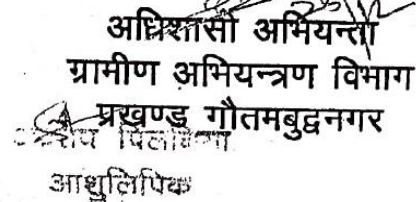 अधिशासी अभियन्ता
ग्रामीण अभियन्त्रण विभाग
प्रखण्ड गौतमबुद्वनगर
आशुलिपिक